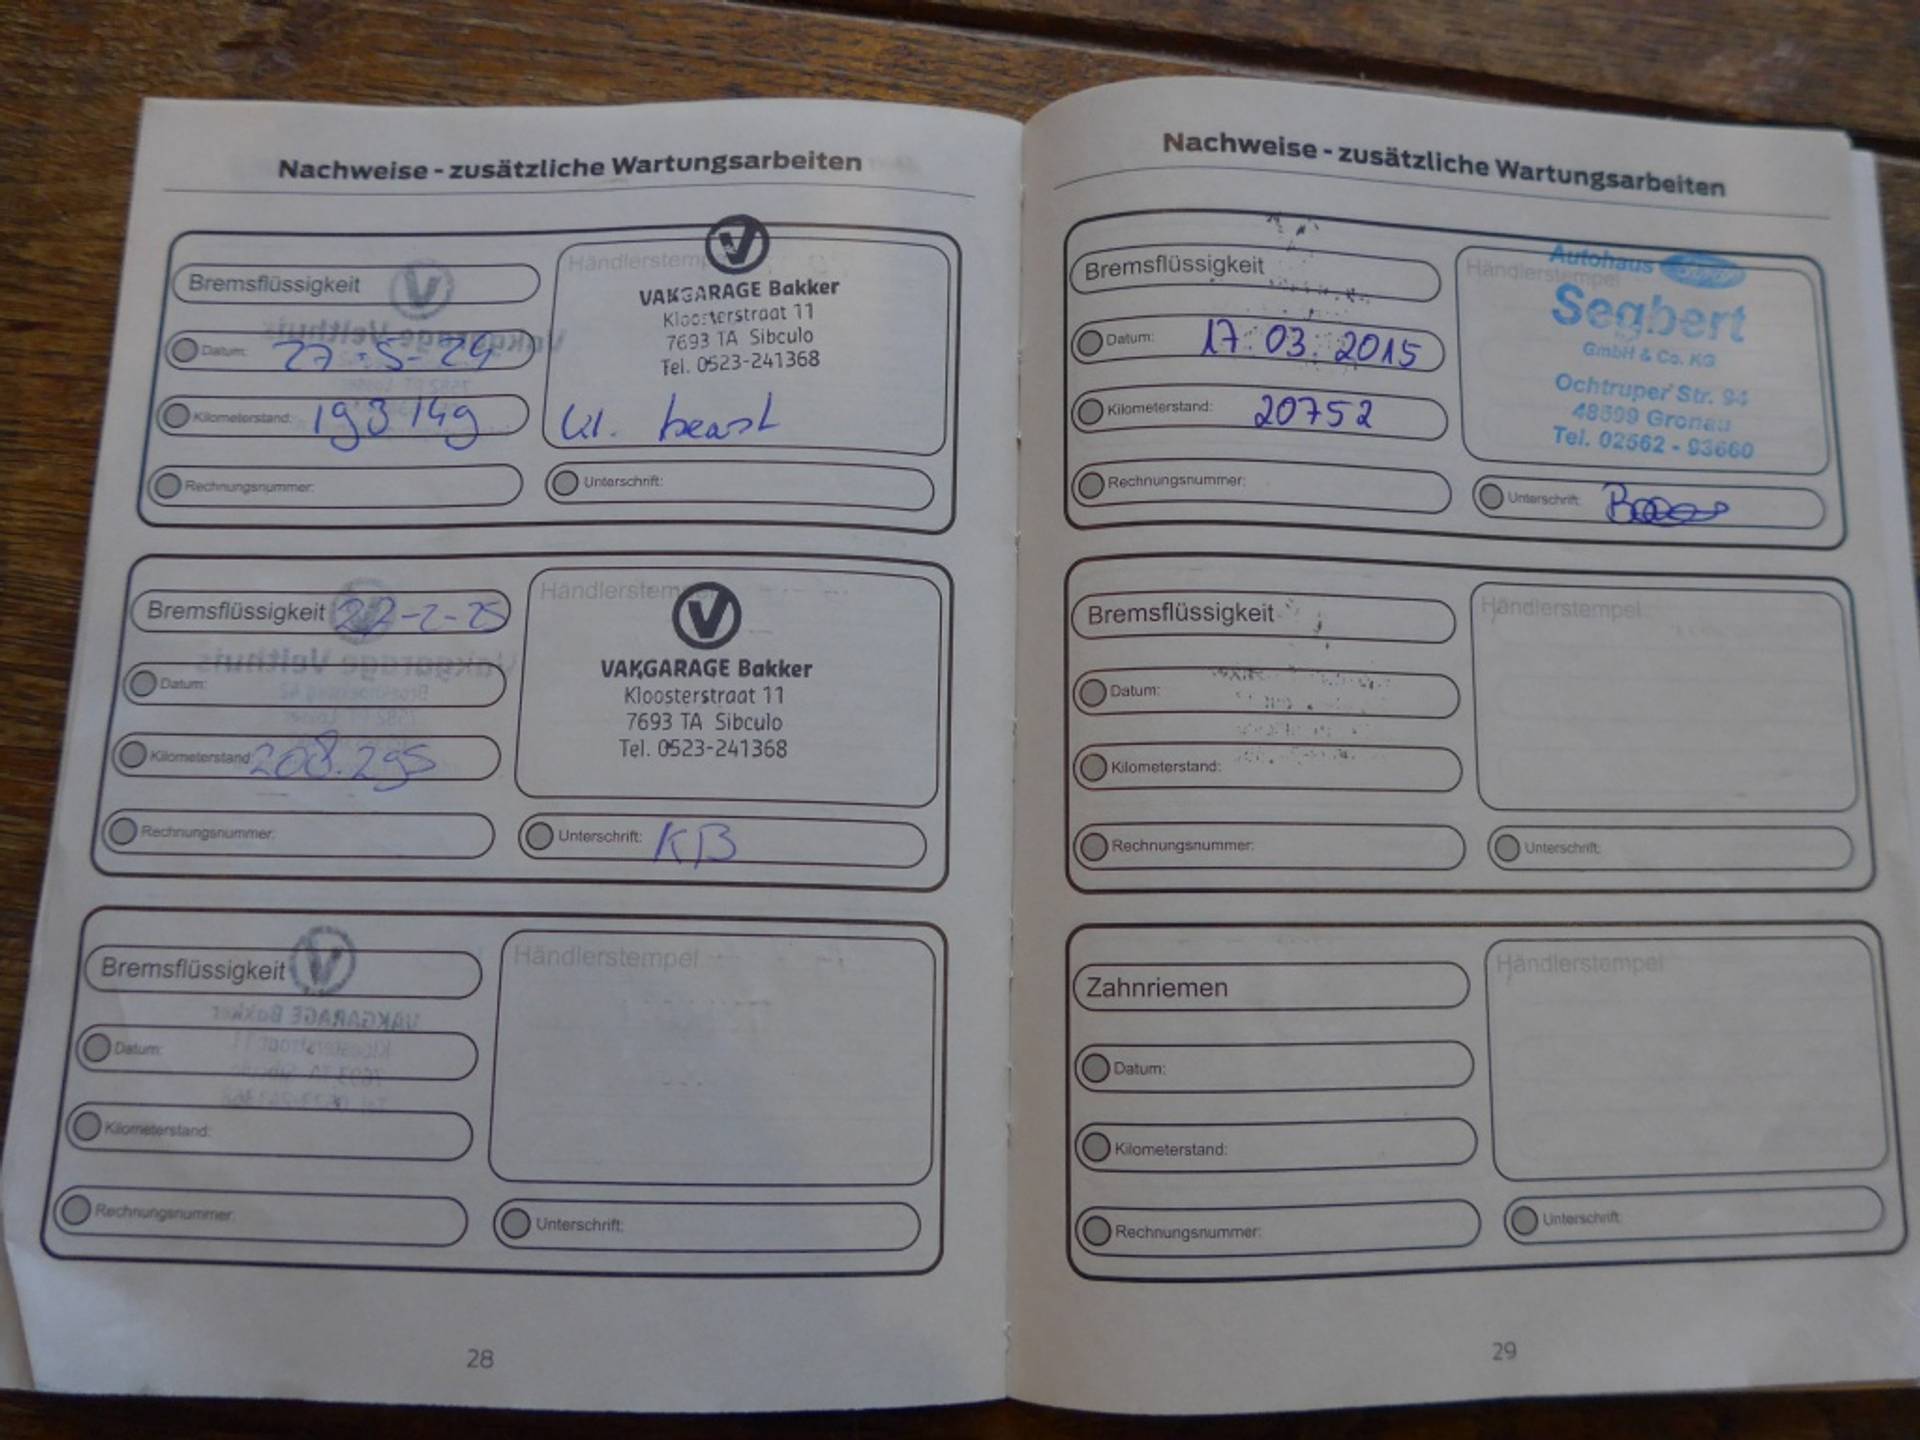 Nachweise - zusätzliche Wartungsarbeiten
Bremsflüssigkeit
Datum: 27-5-24
Kilometerstand: 193149
Rechnungsnummer:
Händlerstempel
VAKGARAGE Bakker
Kloosterstraat 11
7693 TA Sibculo
Tel. 0523-241368
kl. beurt
Unterschrift:
Bremsflüssigkeit 22-2-25
Datum:
Kilometerstand: 208.295
Rechnungsnummer:
Händlerstempel
VAKGARAGE Bakker
Kloosterstraat 11
7693 TA Sibculo
Tel. 0523-241368
Unterschrift: KB
Bremsflüssigkeit
Datum:
Kilometerstand:
Rechnungsnummer:
Händlerstempel
Unterschrift:
28
Nachweise - zusätzliche Wartungsarbeiten
Bremsflüssigkeit
Datum: 17.03.2015
Kilometerstand: 20752
Rechnungsnummer:
Händlerstempel
Autohaus Ford
Segbert
GmbH & Co. KG
Ochtruper Str. 94
48599 Gronau
Tel. 02562 - 93660
Unterschrift:
Bremsflüssigkeit
Datum:
Kilometerstand:
Rechnungsnummer:
Händlerstempel
Unterschrift:
Zahnriemen
Datum:
Kilometerstand:
Rechnungsnummer:
Händlerstempel
Unterschrift:
29